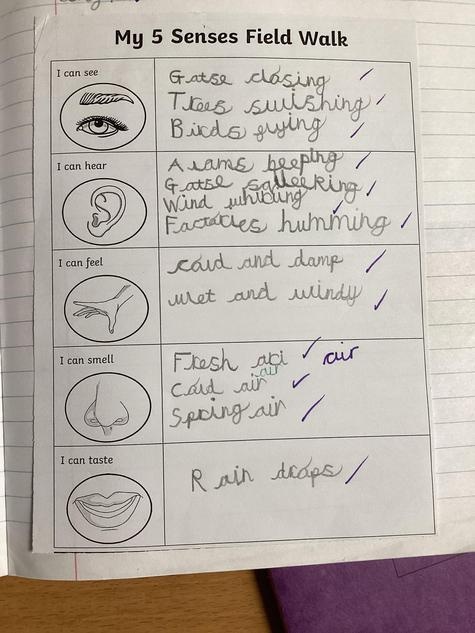 My 5 Senses Field Walk
I can see
Gatse closing
Trees swishing
Birds flying
I can hear
Alarms beeping
Gatse sqlleeking
Wind whibling
Factories humming
I can feel
cold and damp
wet and windy
I can smell
Fresh ari air
air
cold air
Spring air
I can taste
Rain drops